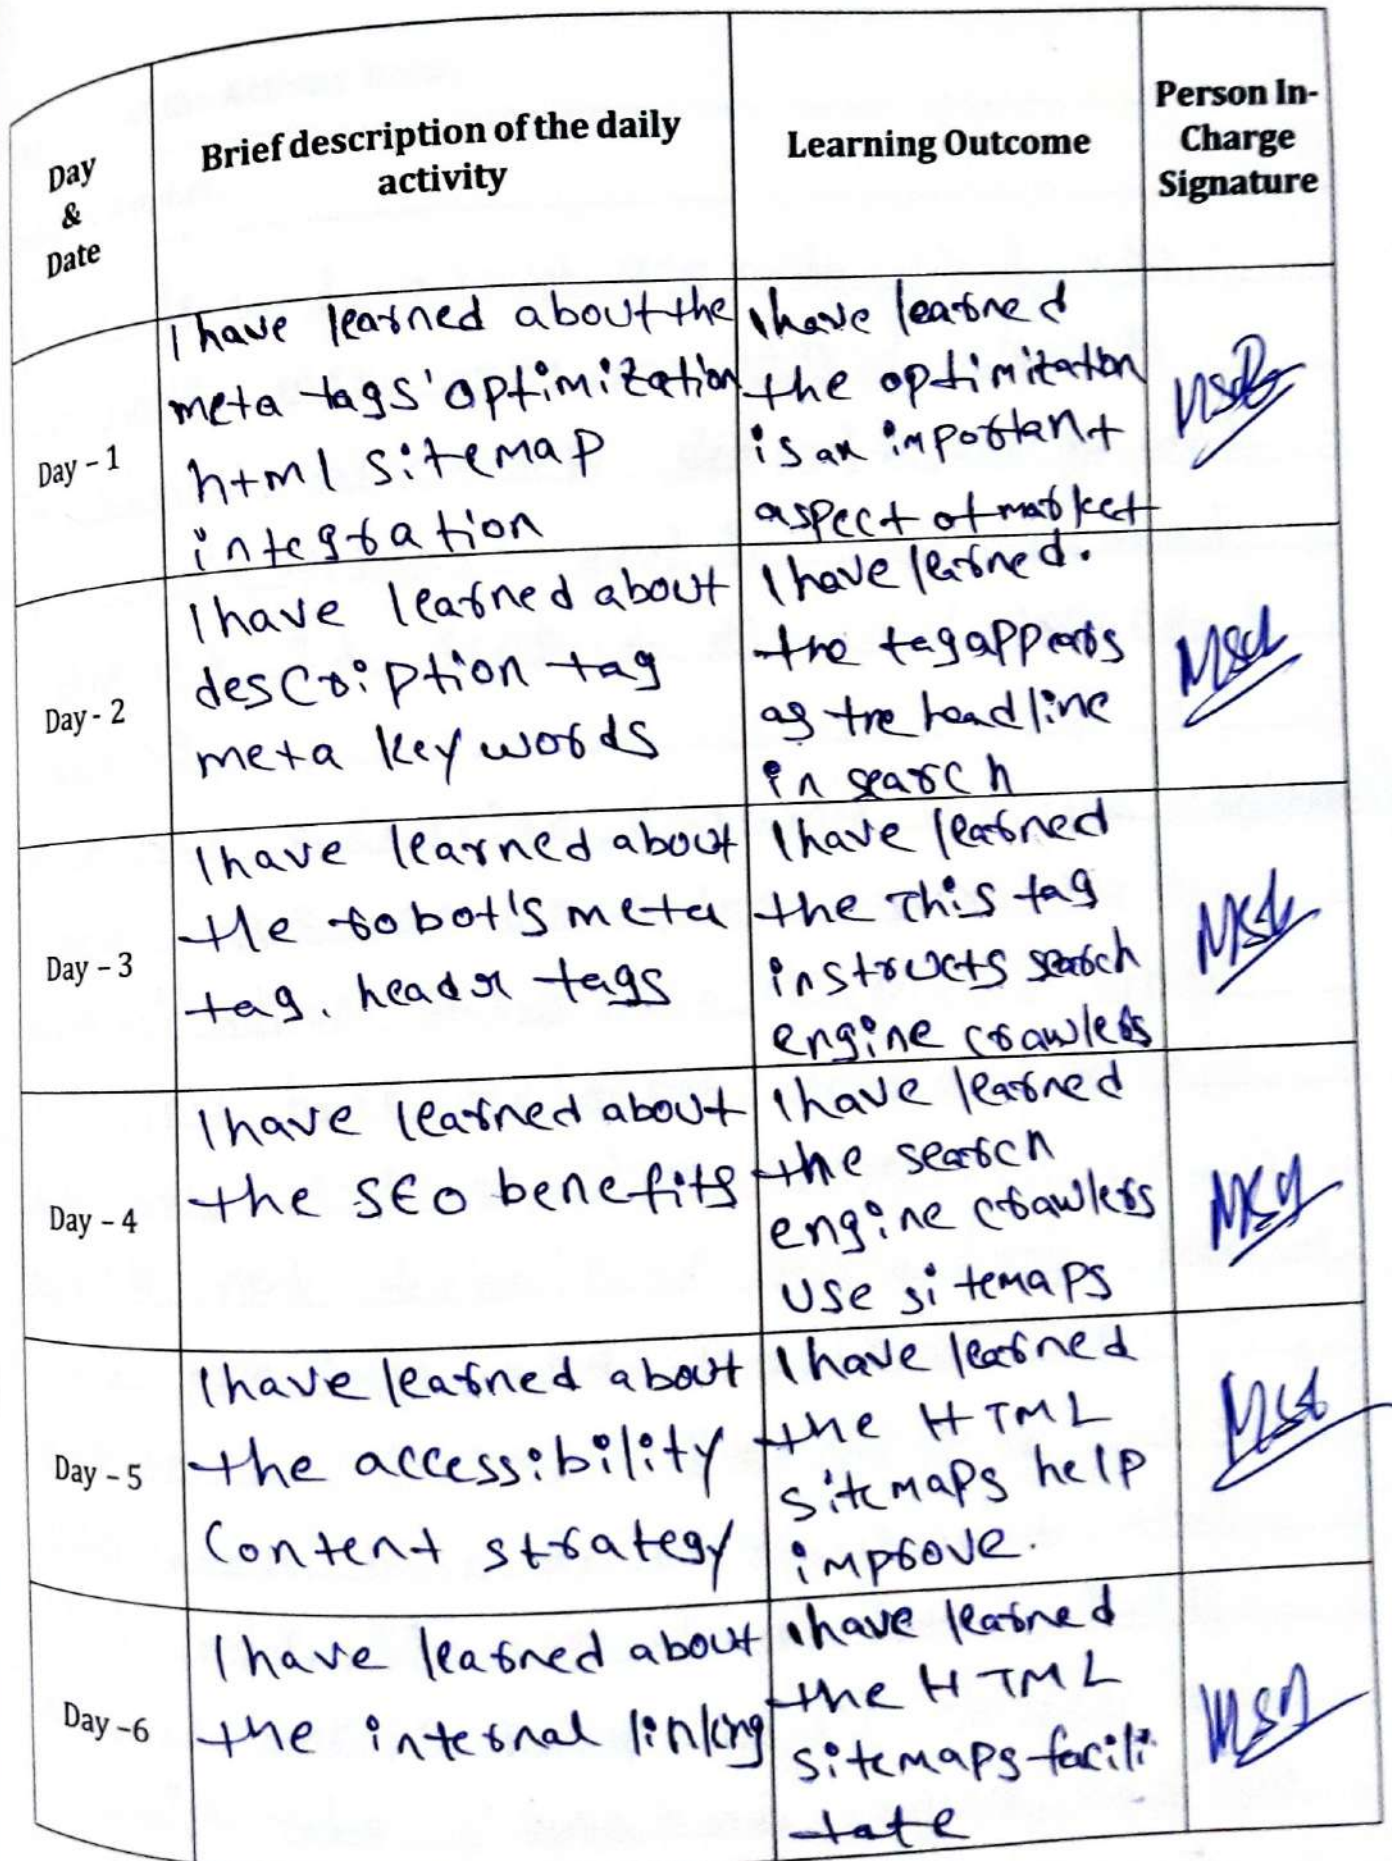 Day
&
Date
Brief description of the daily
activity
Learning Outcome
Person In-
Charge
Signature
Day - 1
I have learned about the
meta tags' optimization
html sitemap
integration
I have learned
the optimitation
is an important
aspect of market
Day - 2
I have learned about
description tag
meta key words
I have learned.
the tag appears
as the headline
in search
Day - 3
I have learned about
the robot's meta
tag. header tags
I have learned
the This tag
instructs search
engine crawlers
Day - 4
I have learned about
the SEO benefits
I have learned
the search
engine crawlers
use sitemaps
Day - 5
I have learned about
the accessibility
Content strategy
I have learned
the HTML
sitemaps help
improve.
Day -6
I have learned about
the internal linking
I have learned
the HTML
sitemaps facili
tate